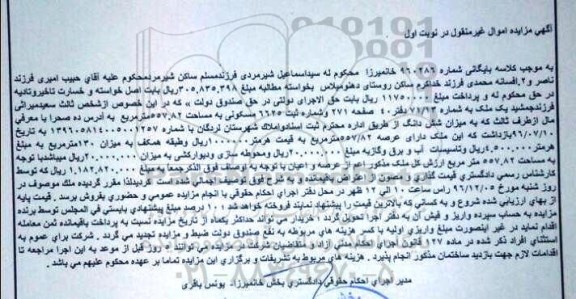 آگهی مزایده اموال غیرمنقول در نوبت اول
به موجب کلاسه بایگانی شماره ۹۶۰۲۸۶ خانمیرزا محکوم له سیداسماعیل شیرمردی فرزندمسلم ساکن شیرمردمحکوم علیه آقای حبیب امیری فرزند
ناصر و۲افسانه محمدی فرزند خداکرم ساکن روستای دهنومیلاس بخواسته مطالبه مبلغ ۳۰۵,۸۳۵,۳۹۸ریال بابت اصل خواسته و خسارت تاخیروتادیه
درحق محکوم له و پرداخت مبلغ ۱۱۷۵۰۰۰۰ ریال بابت حق الاجرای دولتی در حق صندوق دولت « که در این خصوص ازشخص ثالث سعیدمیراثی
فرزندجمشید یک ملک به شماره ۷۱/۱۳ دفتر ۶۰ صفحه ۲۷۱ شماره ثبت ۱۱۲۶۵ مسکونی به مساحت ۵۵۷/۸۲ به آدرس ده صحرا با معرفی
مال ازطرف ثالث که به میزان شش دانگ از طریق اداره محترم ثبت اسنادواملاک شهرستان لردگان با شماره ۱۳۹۶۰۵۸۱۴۰۰۵۰۰۱۲۵۷ به تاریخ
۹۶/۰۷/۱۰بازداشت که این ملک دارای عرصه ۵۵۷/۸۲مترمربع به قیمت هرمتر ۱,۰۰۰,۰۰۰ریال وطبقه همکف به میزان ۱۳۰مترمربع به مبلغ
هرمتر ۴,۵۰۰,۰۰۰ریال وتاسیسات آب و برق وگازبه مبلغ ۲۰,۰۰۰,۰۰۰ریال ومحوطه سازی ودیوارکشی به میزان ۲۰,۰۰۰,۰۰۰ریال میباشدبا توجه
به مساحت ۵۵۷/۸۲ متر مربع ارزش کل ملک مذکور اعم از عرصه و اعیان با توجه به مراتب فوق الذکرجمعا به مبلغ ۱,۱۸۲,۸۲۰,۰۰۰ریال که توسط
کارشناس رسمی دادگستری قیمت گذاری و مصون از اعتراض باقیمانده به شرح فوق توصیف اجمالی شده است گردیدلذا مقرر گردیده ملک موصوف در
روز شنبه مورخ ۹۶/۱۲/۰۵ راس ساعت ۱۰ الی ۱۲ ظهر در محل دفتر اجرای احکام حقوقی با انجام مزایده عمومی و حضوری بفروش برسد . قیمت پایه
از بهای ارزیابی شده شروع و به کسانی که بالاترین قیمت را پیشنهاد نمایند فروخته خواهد شد ۱۰ درصد پیشنهادی بایستی فی المجلس توسط برنده
مزایده به حساب سپرده واریز و فیش آن به دفتر اجرا تحویل گردد . خریدار می تواند حداکثر یکماه از تاریخ مزایده نسبت به پرداخت باقیمانده ثمن معامله
اقدام نماید در غیر اینصورت مبلغ واریزی اولیه با کسر هزینه های مربوطه به نفع صندوق دولت ضبط و مزایده تجدید می گردد . شرکت برای عموم به
استثنای افراد ذکر شده در ماده ۱۲۷ قانون اجرای احکام مدنی آزاد و متقاضیان شرکت در مزایده می توانند ۵ روز قبل از موعد به این اجرا مراجعه تا
اقدامات لازم جهت بازدید ساختمان مذکور انجام پذیرد . هزینه های مربوط به تشریفات و برگزاری این مزایده تماما بر عهده محکوم علیهم می باشد .
مدیر اجرای احکام حقوقی دادگستری بخش خانمیرزا_ یونس باقری
۰۲۱-۸۸۳۴۹۶۷۰-۵